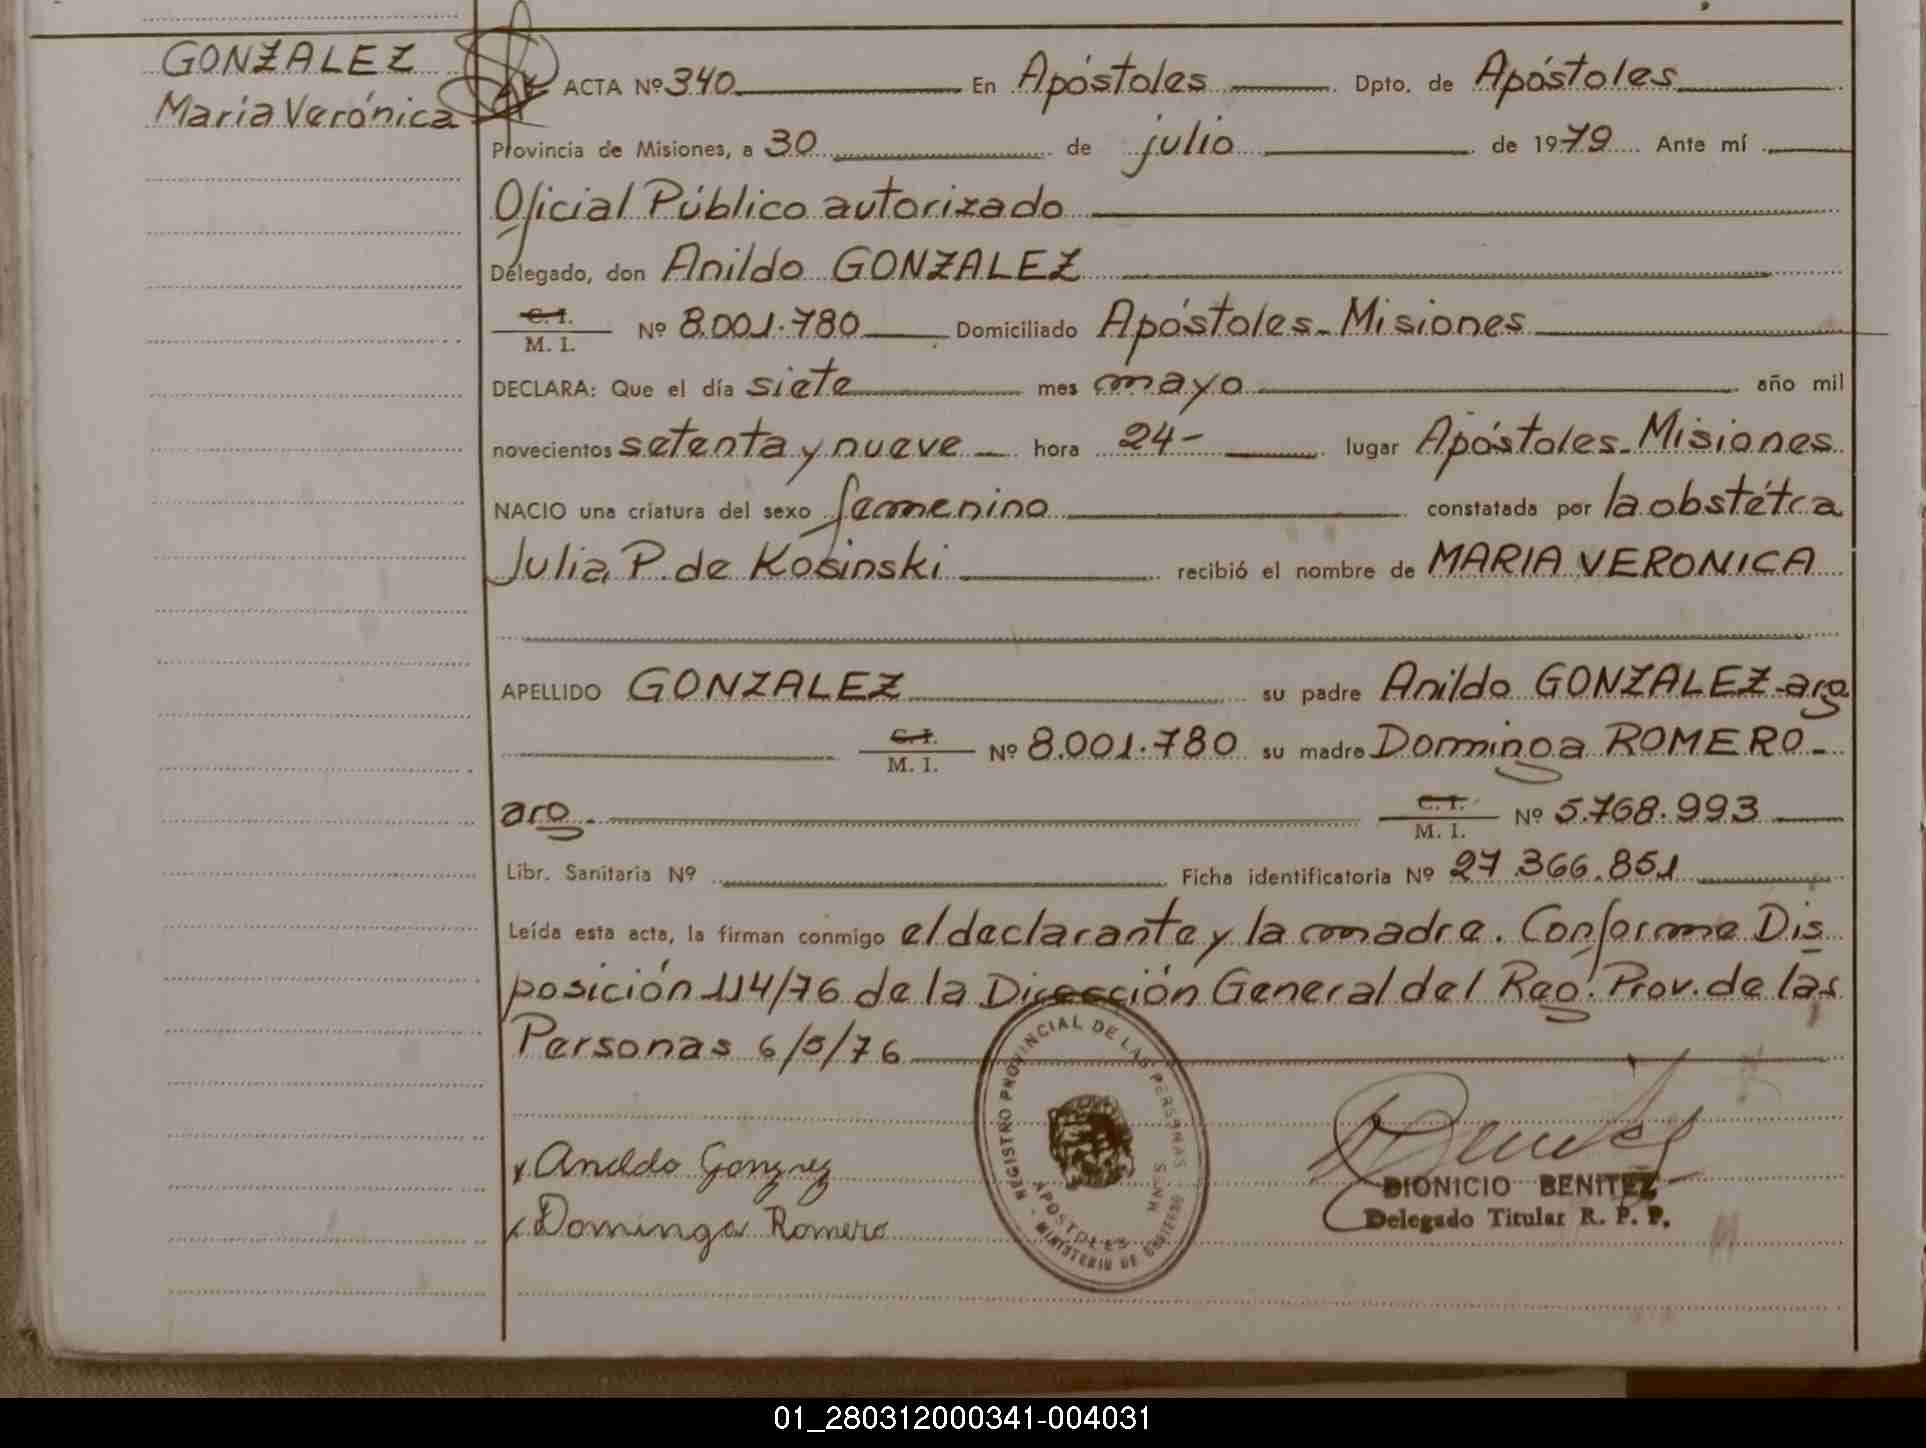 GONZALEZ
Maria Verónica
ACTA Nº 340 En Apóstoles Dpto. de Apóstoles
Provincia de Misiones, a 30 de julio de 1979 Ante mí
Oficial Público autorizado
Delegado, don Anildo GONZALEZ
C. I.
M. I. Nº 8.001.780 Domiciliado Apóstoles - Misiones
DECLARA: Que el día siete mes mayo año mil
novecientos setenta y nueve hora 24- lugar Apóstoles - Misiones
NACIO una criatura del sexo femenino constatada por la obstétra
Julia P. de Kosinski recibió el nombre de MARIA VERONICA
APELLIDO GONZALEZ su padre Anildo GONZALEZ - arg
C. I.
M. I. Nº 8.001.780 su madre Dominga ROMERO -
arg. C. I.
M. I. Nº 5.768.993
Libr. Sanitaria Nº Ficha identificatoria Nº 27.366.851
Leída esta acta, la firman conmigo el declarante y la madre. Conforme Dis
posición 114/76 de la Dirección General del Reg. Prov. de las
Personas 6/5/76
REGISTRO PROVINCIAL DE LAS PERSONAS
APOSTOLES MNES.
MINISTERIO DE GOBIERNO
Dominga Romero
DIONICIO BENITEZ
Delegado Titular R. P. P.
01_280312000341-004031